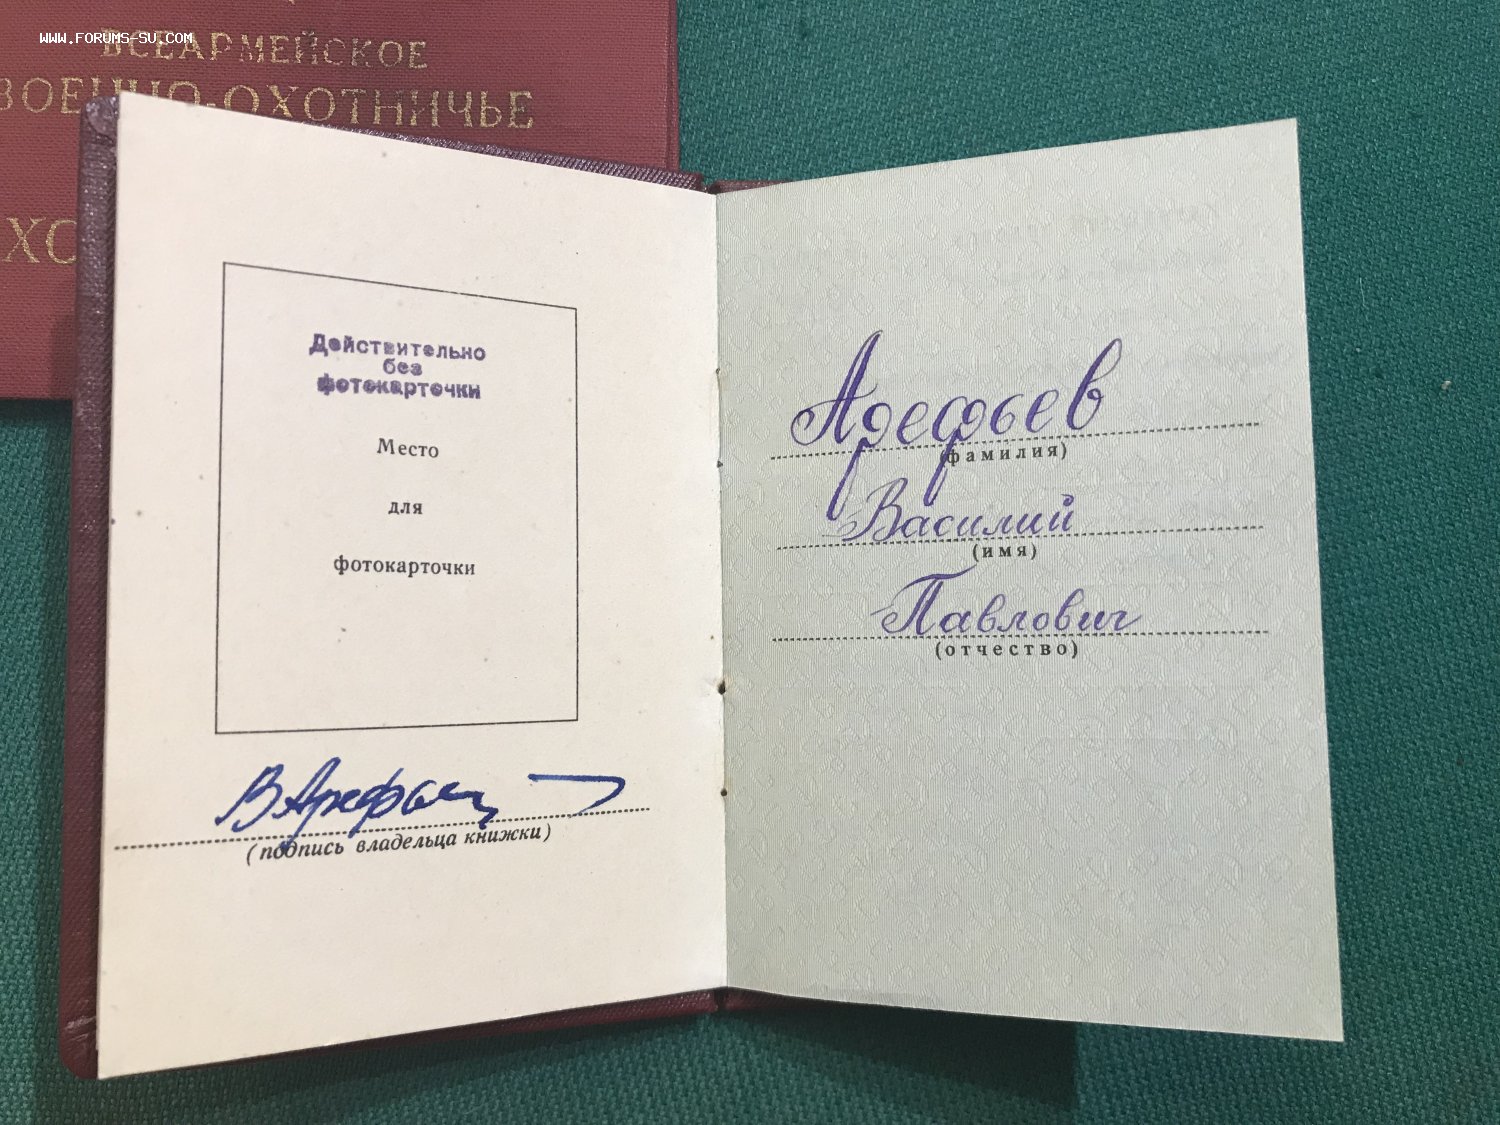 WWW.FORUMS-SU.COM
ВСЕАРМЕЙСКОЕ
ВОЕННО-ОХОТНИЧЬЕ
Действительно
без
фотокарточки
Место
для
фотокарточки
В Арефьев
(подпись владельца книжки)
Арефьев
(фамилия)
Василий
(имя)
Павлович
(отчество)